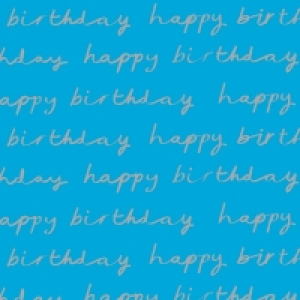 birthday happy birth
hday happy birthday
appy birthday happy
birthday happy birth
hday happy birthday
appy birthday happy
birthday happy birt
hday happy birthday